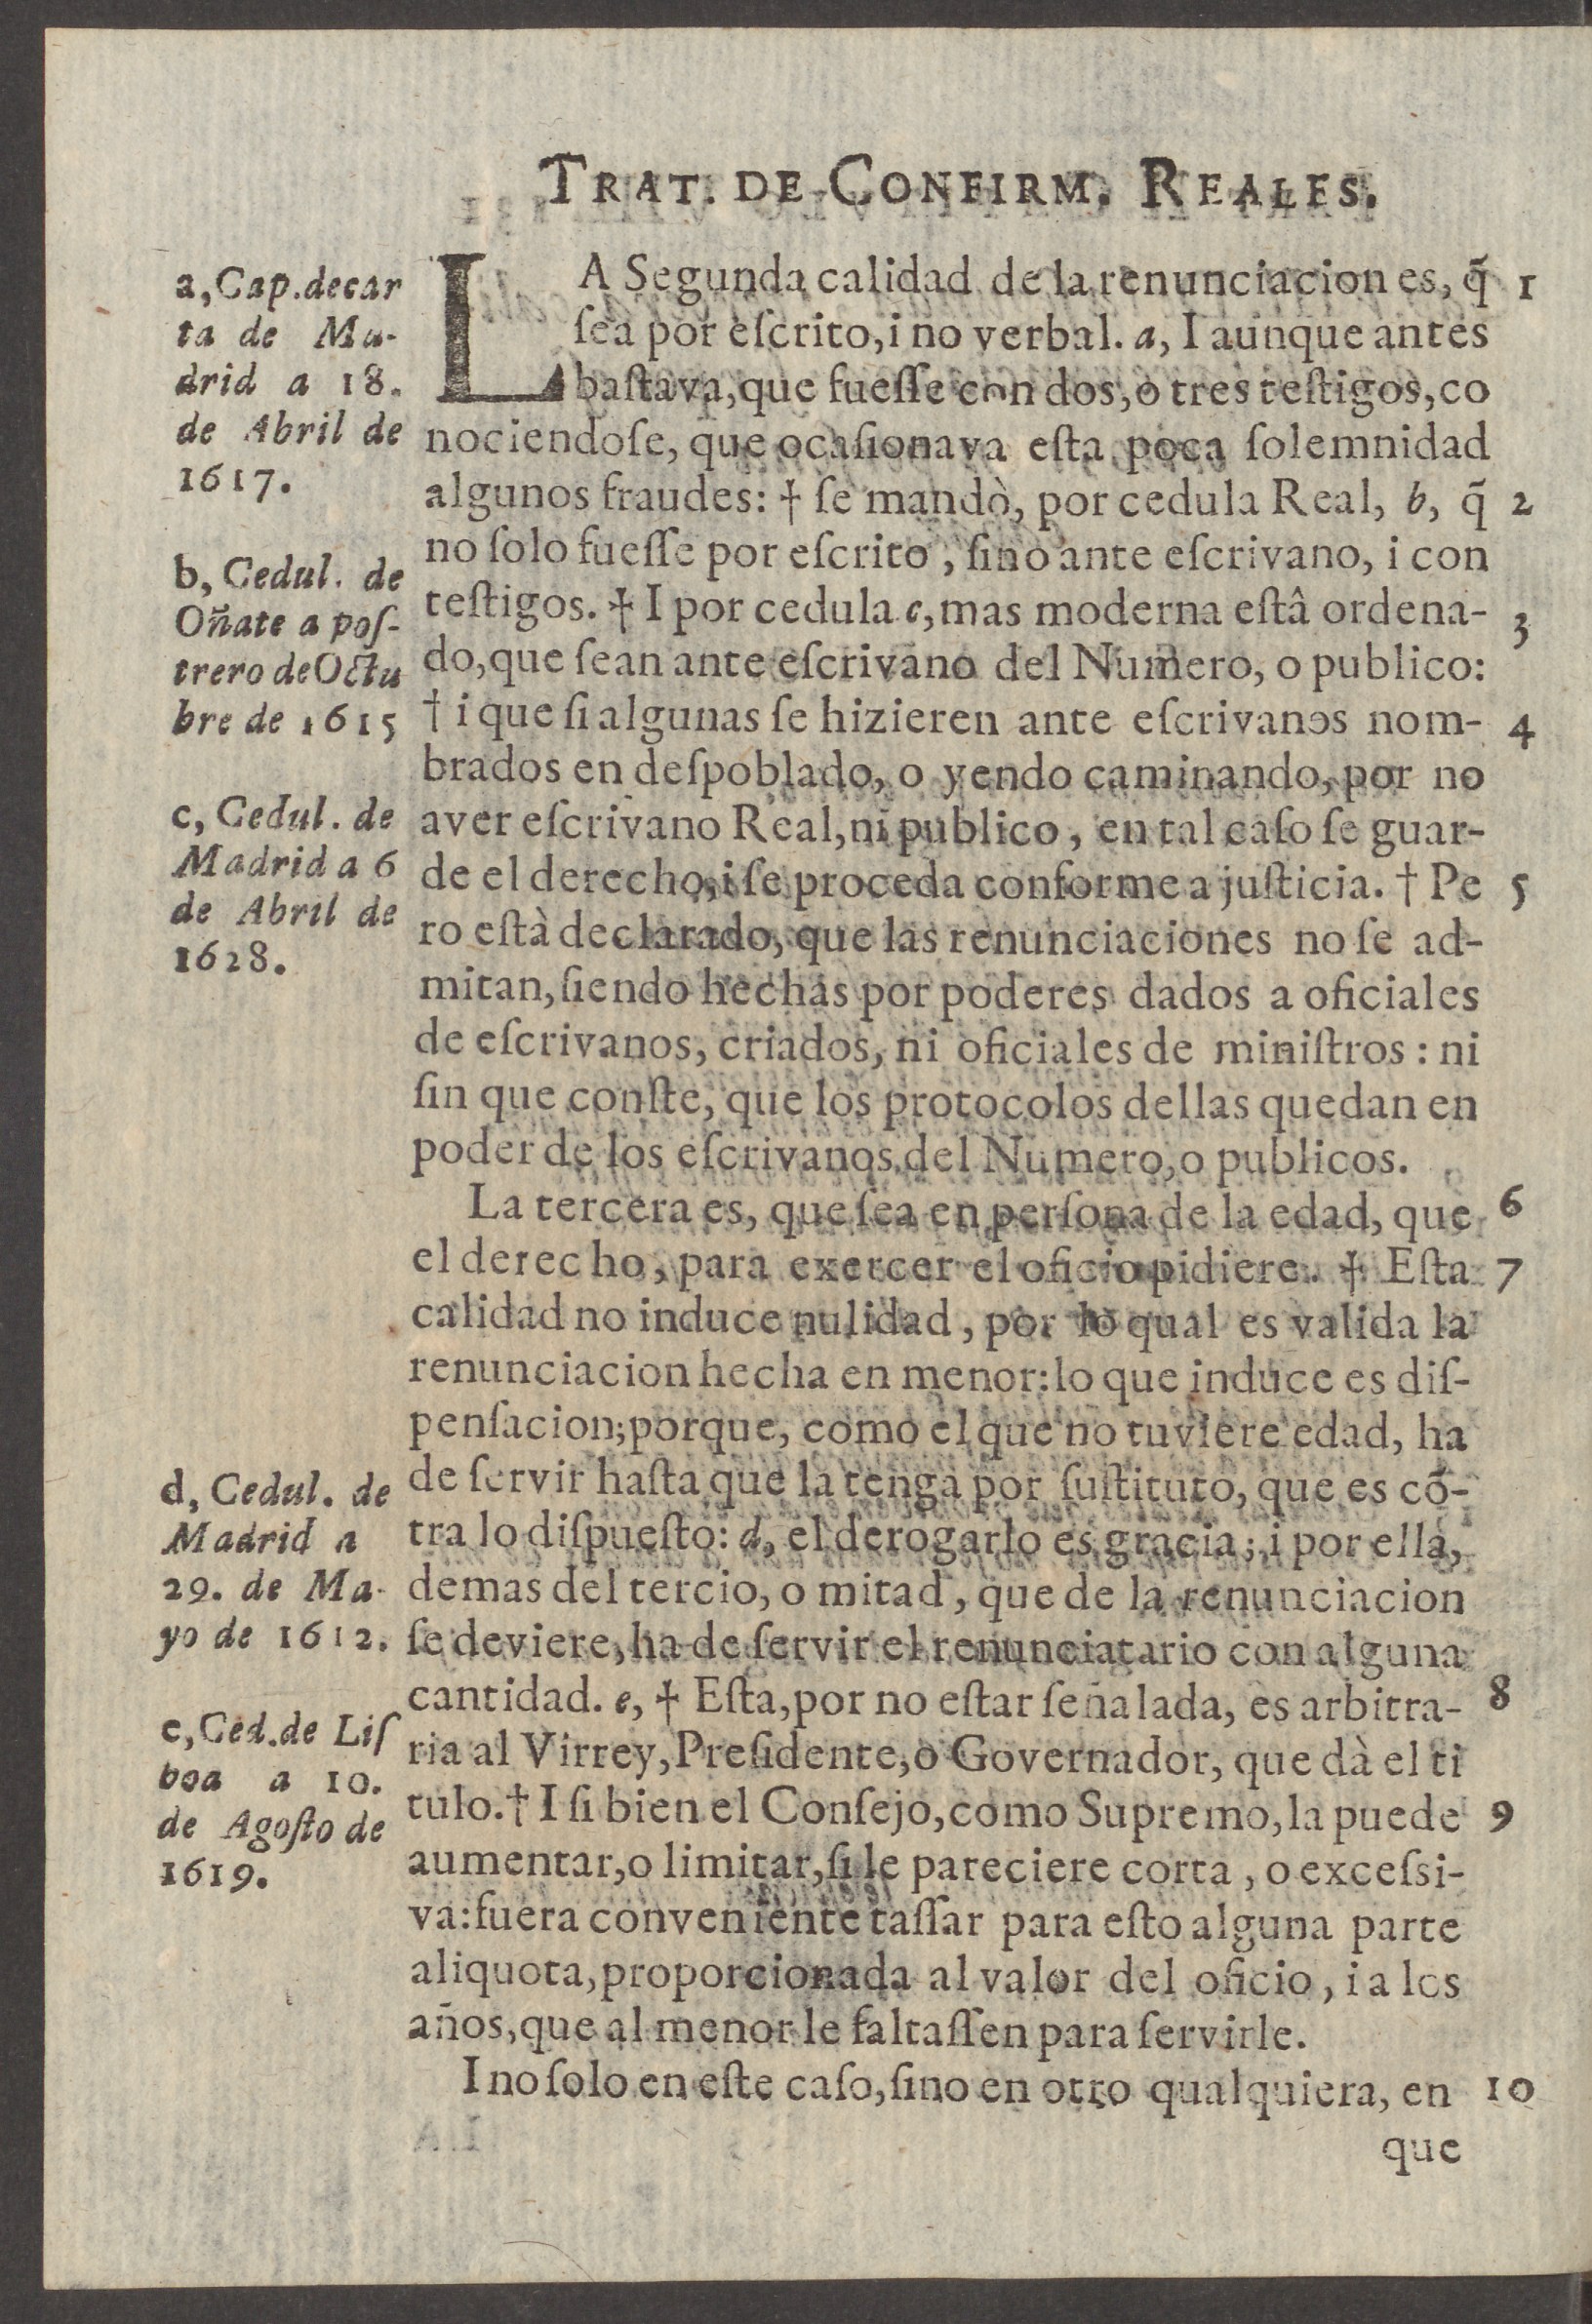 TRAT. DE CONFIRM. REALES.
a, Cap. de car
ta de Ma-
drid a 18.
de Abril de
1617.
b, Cedul. de
Oñate a poſ-
trero de Octu
bre de 1615
c, Cedul. de
Madrid a 6
de Abril de
1628.
d, Cedul. de
Madrid a
29. de Ma-
yo de 1612.
e, Ced. de Liſ
boa a 10.
de Agoſto de
1619.
LA Segunda calidad de la renunciacion es, q̃ 1
ſea por eſcrito, i no verbal. a, I aunque antes
baſtava, que fueſſe con dos, o tres teſtigos, co
nociendoſe, que ocaſionava eſta poca ſolemnidad
algunos fraudes: † ſe mandò, por cedula Real, b, q̃ 2
no ſolo fueſſe por eſcrito, ſino ante eſcrivano, i con
teſtigos. † I por cedula c, mas moderna eſtâ ordena- 3
do, que ſean ante eſcrivano del Numero, o publico:
† i que ſi algunas ſe hizieren ante eſcrivanos nom- 4
brados en deſpoblado, o yendo caminando, por no
aver eſcrivano Real, ni publico, en tal caſo ſe guar-
de el derecho, i ſe proceda conforme a juſticia. † Pe 5
ro eſtà declarado, que las renunciaciones no ſe ad-
mitan, ſiendo hechas por poderes dados a oficiales
de eſcrivanos, criados, ni oficiales de miniſtros: ni
ſin que conſte, que los protocolos dellas quedan en
poder de los eſcrivanos del Numero, o publicos.
La tercera es, que ſea en perſona de la edad, que 6
el derecho, para exercer el oficio pidiere. † Eſta 7
calidad no induce nulidad, por lo qual es valida la
renunciacion hecha en menor: lo que induce es diſ-
penſacion; porque, como el que no tuviere edad, ha
de ſervir haſta que la tenga por ſuſtituto, que es cõ-
tra lo diſpueſto: d, el derogarlo es gracia; i por ella,
demas del tercio, o mitad, que de la renunciacion
ſe deviere, ha de ſervir el renunciatario con alguna
cantidad. e, † Eſta, por no eſtar ſeñalada, es arbitra- 8
ria al Virrey, Preſidente, o Governador, que dà el ti
tulo. † I ſi bien el Conſejo, como Supremo, la puede 9
aumentar, o limitar, ſi le pareciere corta, o exceſsi-
va: fuera conveniente taſſar para eſto alguna parte
aliquota, proporcionada al valor del oficio, i a los
años, que al menor le faltaſſen para ſervirle.
I no ſolo en eſte caſo, ſino en otro qualquiera, en 10
que